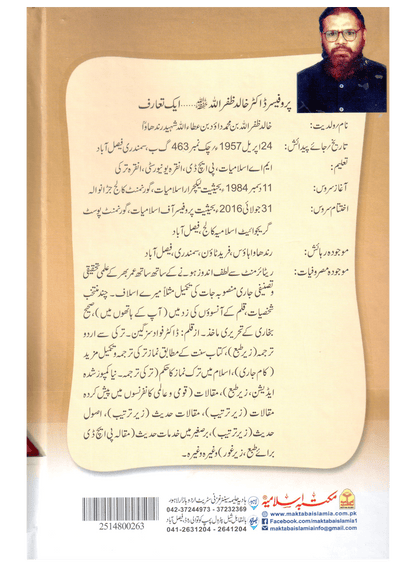 پروفیسر ڈاکٹر خالد ظفر اللہ ﷾ ..... ایک تعارف
نام رولدیت: خالد ظفر اللہ بن محمد داؤد بن عطاء اللہ شہید رندھاوا
تاریخ رجائے پیدائش: 24 اپریل 1957ء، چک نمبر 463 گ ب، سمندری فیصل آباد
تعلیم: ایم اے اسلامیات، پی ایچ ڈی، انقرہ یونیورسٹی، انقرہ ترکی
آغاز سروس: 11 دسمبر 1984، بحیثیت لیکچرار اسلامیات، گورنمنٹ کالج جڑانوالہ
اختتام سروس: 31 جولائی 2016، بحیثیت پروفیسر آف اسلامیات، گورنمنٹ پوسٹ
گریجوایٹ اسلامیہ کالج، فیصل آباد
موجودہ رہائش: رندھاوا ہاؤس، فرید ٹاؤن، سمندری، فیصل آباد
موجودہ مصروفیات: ریٹائرمنٹ سے لطف اندوز ہونے کے ساتھ ساتھ عمر بھر کے علمی و تحقیقی
و تصنیفی جاری منصوبہ جات کی تکمیل مثلاً میرے اسلاف۔ چند منتخب
شخصیات، قلم کے آنسوؤں کی زد میں (آپ کے ہاتھوں میں)، صحیح
بخاری کے تحریری ماخذ۔ از قلم: ڈاکٹر فواد سزگین۔ ترکی سے اردو
ترجمہ (زیر طبع)، کتاب سنت کے مطابق نماز ترکی ترجمہ و تکمیل مزید
(کام جاری)، اسلام میں ترک نماز کا حکم (ترکی ترجمہ۔ نیا کمپوز شدہ
ایڈیشن، زیر طبع)، مقالات (قومی و عالمی کانفرنسوں میں پیش کردہ
مقالات (زیر ترتیب)، مقالات حدیث (زیر ترتیب)، اصول
حدیث (زیر ترتیب)، برصغیر میں خدمات حدیث (مقالہ پی ایچ ڈی
برائے طبع، زیر غور) وغیرہ وغیرہ۔
مکتبہ اسلامیہ
www.maktabaislamia.com.pk
Facebook.com/maktabaislamia1
maktabaislamiainfo@gmail.com
ہادیہ حلیمہ سینٹر غزنی سٹریٹ اردو بازار لاہور
042-37244973 - 37232369
041-2631204 - 2641204
2514800263